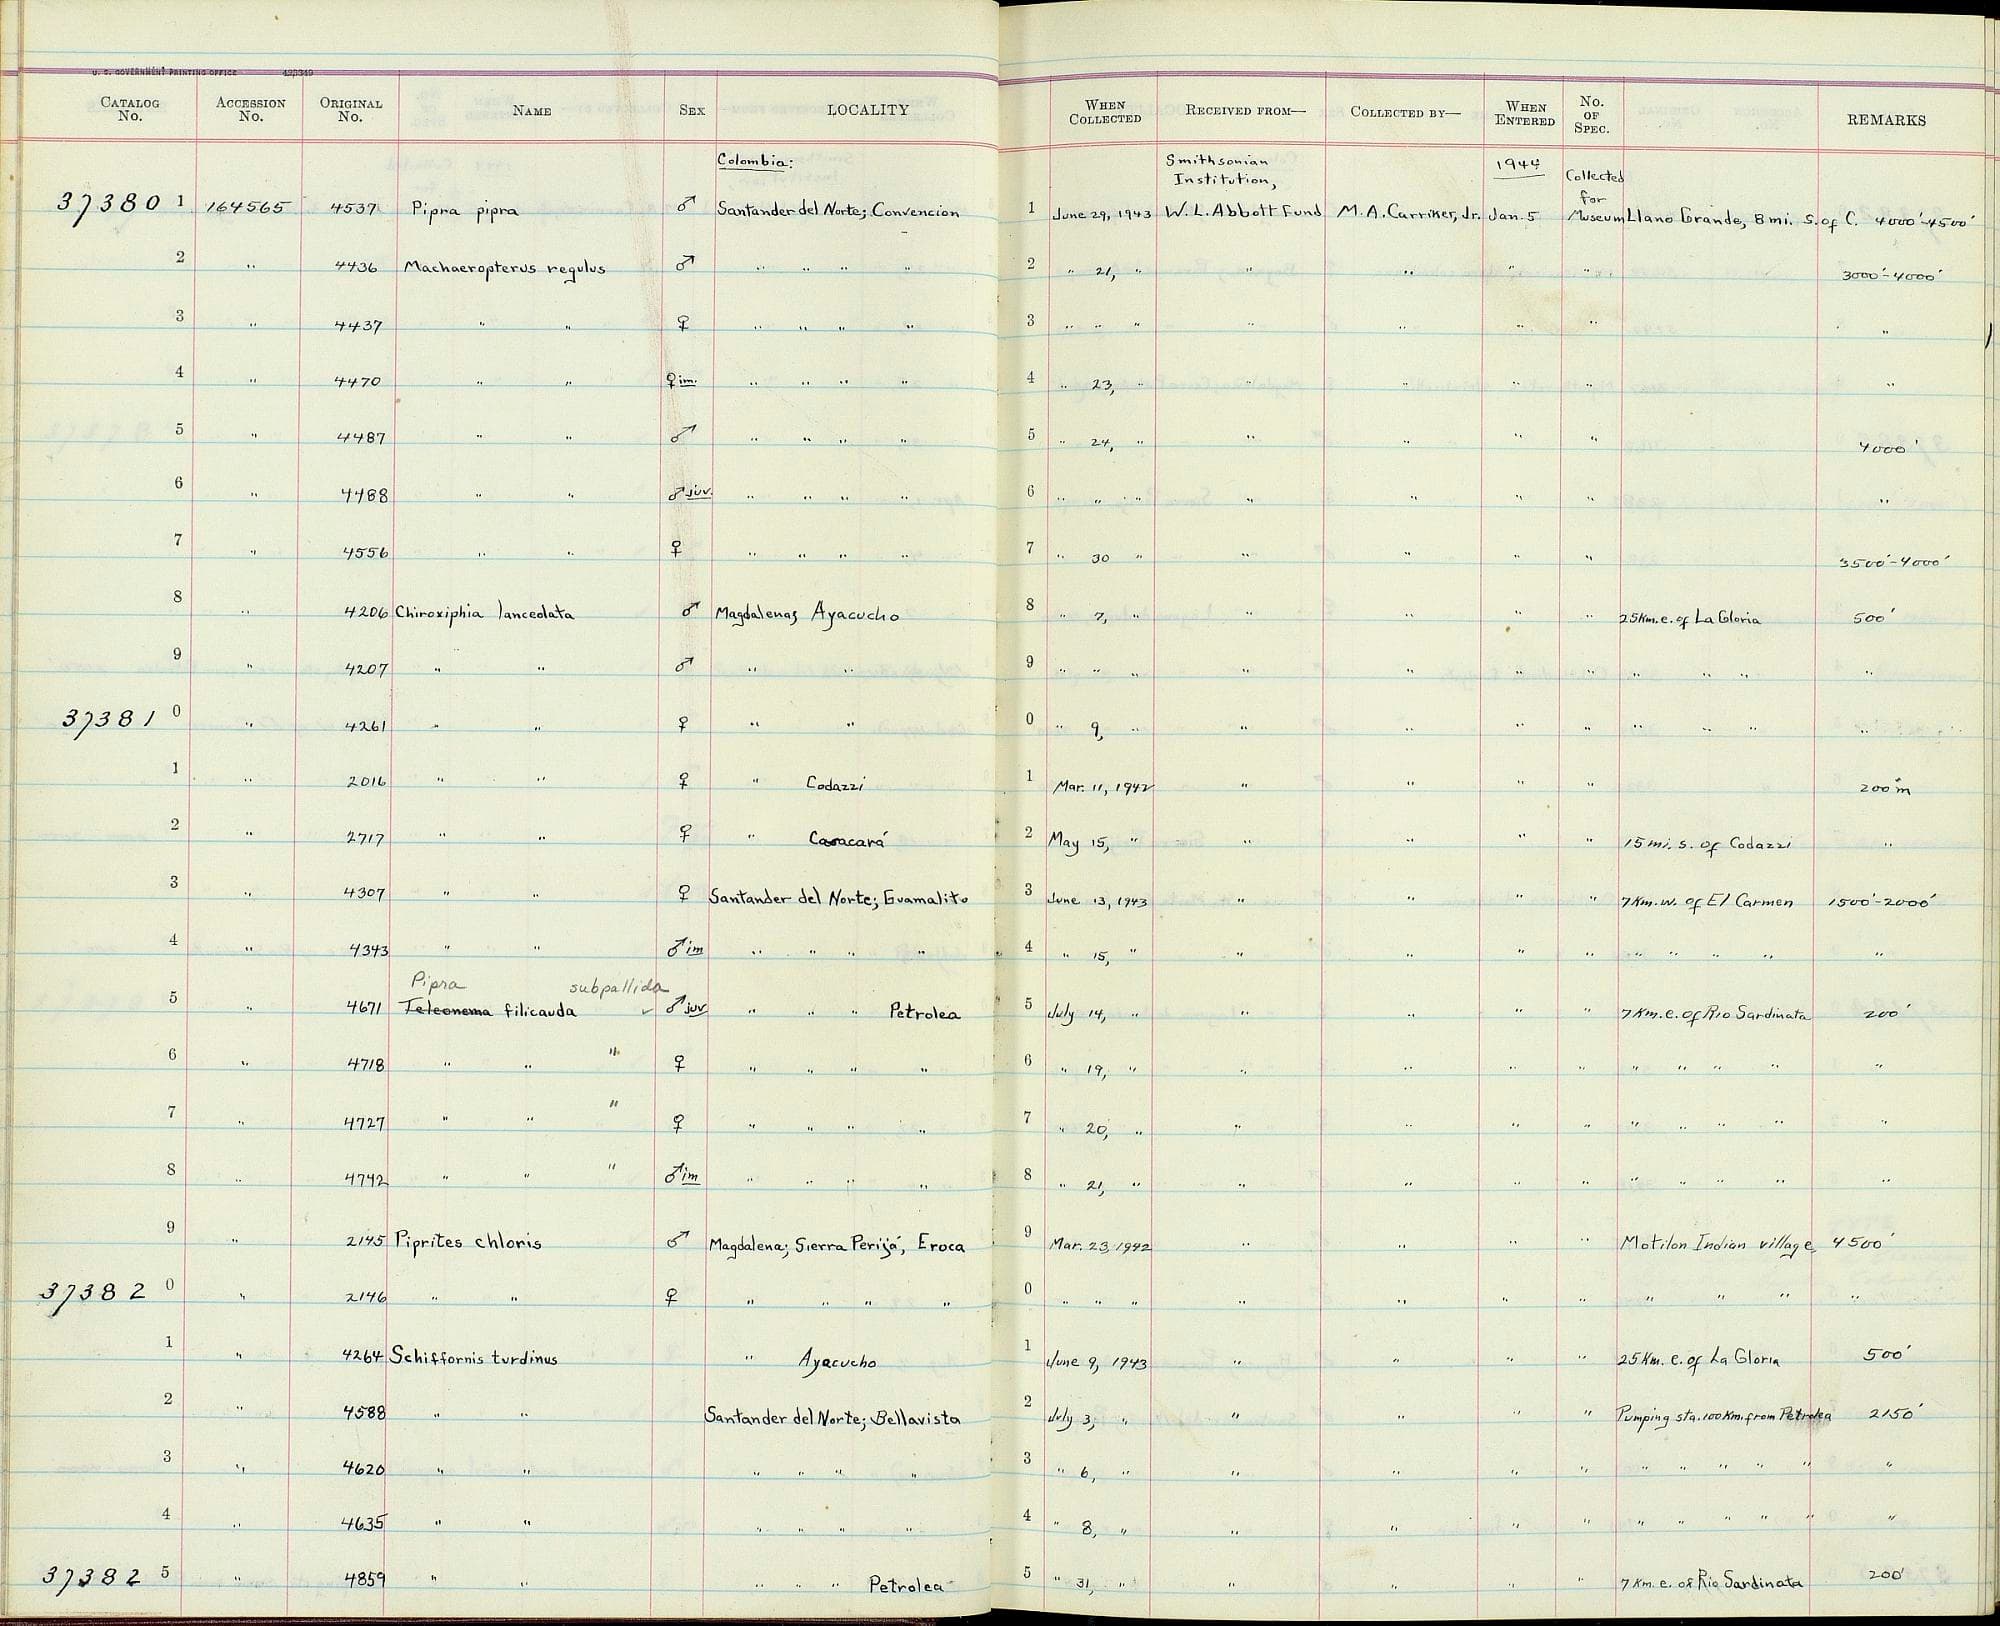 U. S. GOVERNMENT PRINTING OFFICE 429349
CATALOG No. ACCESSION No. ORIGINAL No. NAME SEX LOCALITY WHEN COLLECTED RECEIVED FROM— COLLECTED BY— WHEN ENTERED NO. OF SPEC. REMARKS
Colombia: Smithsonian Institution, 1944 Collected for
37380 1 164565 4537 Pipra pipra ♂ Santander del Norte; Convencion 1 June 29, 1943 W. L. Abbott Fund M. A. Carriker, Jr. Jan. 5 Museum Llano Grande, 8 mi. S. of C. 4000'-4500'
2 " 4436 Machaeropterus regulus ♂ " " " " 2 " 21, " " " " " 3000'-4000'
3 " 4437 " " ♀ " " " " 3 " " " " " " " "
4 " 4470 " " ♀ im. " " " " 4 " 23, " " " " " "
5 " 4487 " " ♂ " " " " 5 " 24, " " " " " 4000'
6 " 4488 " " ♂ juv. " " " " 6 " " " " " " " "
7 " 4556 " " ♀ " " " " 7 " 30 " " " " " 3500'-4000'
8 " 4206 Chiroxiphia lanceolata ♂ Magdalena; Ayacucho 8 " 7, " " " " " 25 Km. e. of La Gloria 500'
9 " 4207 " " ♂ " " 9 " " " " " " " " " " "
37381 0 " 4261 " " ♀ " " 0 " 9, " " " " " " " " "
1 " 2016 " " ♀ " Codazzi 1 Mar. 11, 1942 " " " " 200 m
2 " 2717 " " ♀ " Casacará 2 May 15, " " " " " 15 mi. s. of Codazzi "
3 " 4307 " " ♀ Santander del Norte; Guamalito 3 June 13, 1943 " " " " 7 Km. w. of El Carmen 1500'-2000'
4 " 4343 " " ♂ im " " " " 4 " 15, " " " " " " " " " "
Pipra subpallida
5 " 4671 Teleonema filicauda ✓ ♂ juv. " " " Petrolea 5 July 14, " " " " " 7 Km. e. of Rio Sardinata 200'
6 " 4718 " " " ♀ " " " " 6 " 19, " " " " " " " " " "
7 " 4727 " " " ♀ " " " " 7 " 20, " " " " " " " " " "
8 " 4742 " " " ♂ im " " " " 8 " 21, " " " " " " " " " "
9 " 2145 Piprites chloris ♂ Magdalena; Sierra Perijá, Eroca 9 Mar. 23, 1942 " " " " Motilon Indian village, 4500'
37382 0 " 2146 " " ♀ " " " " 0 " " " " " " " " " " "
1 " 4264 Schiffornis turdinus " Ayacucho 1 June 9, 1943 " " " " 25 Km. e. of La Gloria 500'
2 " 4588 " " Santander del Norte; Bellavista 2 July 3, " " " " " Pumping sta. 100 Km. from Petrolea 2150'
3 " 4620 " " " " " " 3 " 6, " " " " " " " " " " "
4 " 4635 " " " " " " 4 " 8, " " " " " " " " " " "
37382 5 " 4859 " " " " " Petrolea 5 " 31, " " " " " 7 Km. e. of Rio Sardinata 200'